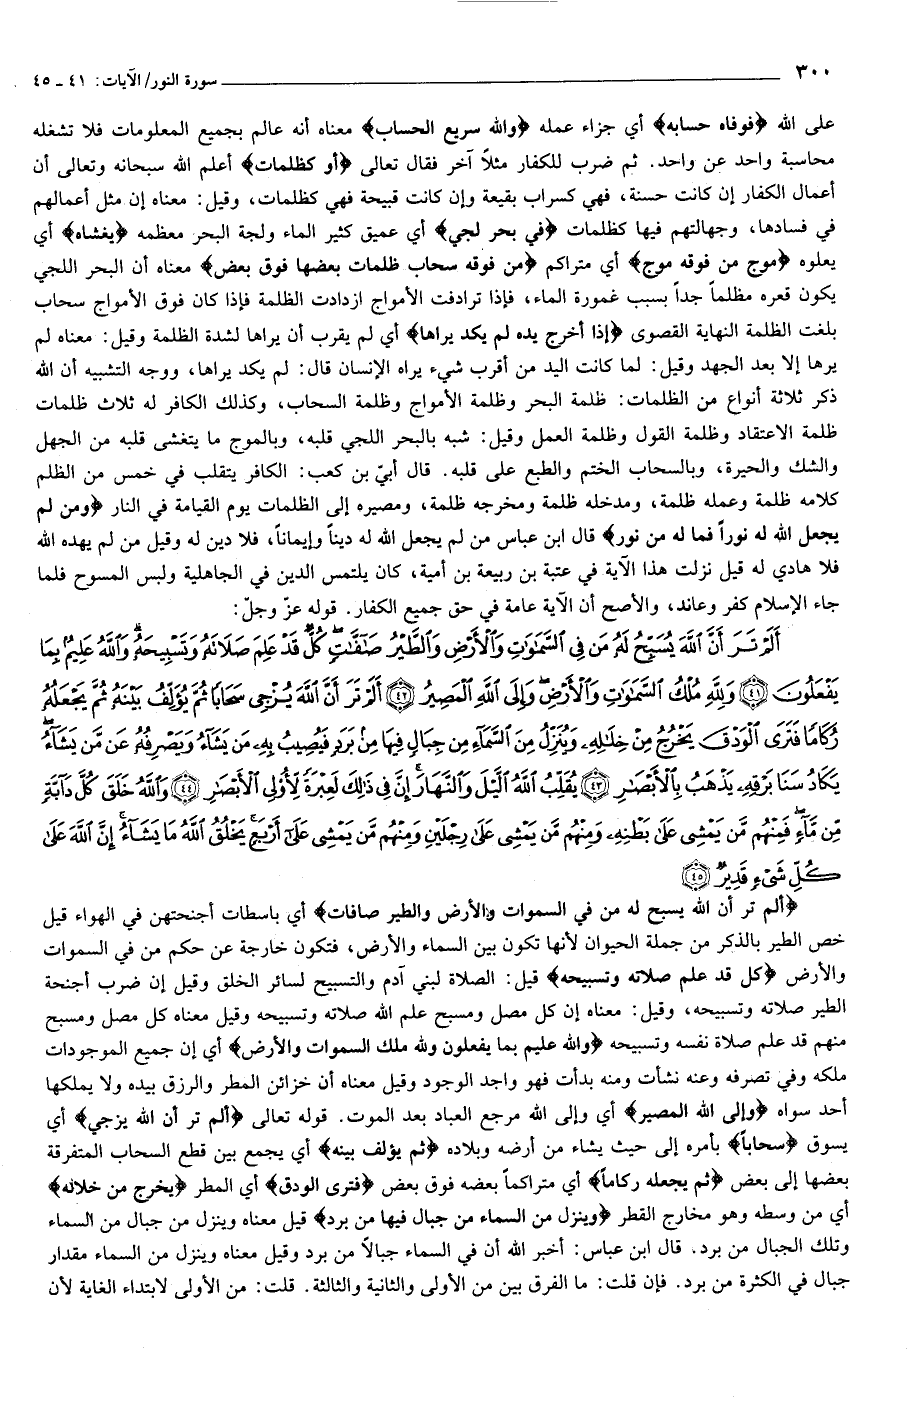 ٣٠٠ سورة النور/ الآيات: ٤١ - ٤٥
على الله ﴿فوفاه حسابه﴾ أي جزاء عمله ﴿والله سريع الحساب﴾ معناه أنه عالم بجميع المعلومات فلا تشغله
محاسبة واحد عن واحد. ثم ضرب للكفار مثلاً آخر فقال تعالى ﴿أو كظلمات﴾ أعلم الله سبحانه وتعالى أن
أعمال الكفار إن كانت حسنة، فهي كسراب بقيعة وإن كانت قبيحة فهي كظلمات، وقيل: معناه إن مثل أعمالهم
في فسادها، وجهالتهم فيها كظلمات ﴿في بحر لجي﴾ أي عميق كثير الماء ولجة البحر معظمه ﴿يغشاه﴾ أي
يعلوه ﴿موج من فوقه موج﴾ أي متراكم ﴿من فوقه سحاب ظلمات بعضها فوق بعض﴾ معناه أن البحر اللجي
يكون قعره مظلماً جداً بسبب غمورة الماء، فإذا ترادفت الأمواج ازدادت الظلمة فإذا كان فوق الأمواج سحاب
بلغت الظلمة النهاية القصوى ﴿إذا أخرج يده لم يكد يراها﴾ أي لم يقرب أن يراها لشدة الظلمة وقيل: معناه لم
يرها إلا بعد الجهد وقيل: لما كانت اليد من أقرب شيء يراه الإنسان قال: لم يكد يراها، ووجه التشبيه أن الله
ذكر ثلاثة أنواع من الظلمات: ظلمة البحر وظلمة الأمواج وظلمة السحاب، وكذلك الكافر له ثلاث ظلمات
ظلمة الاعتقاد وظلمة القول وظلمة العمل وقيل: شبه بالبحر اللجي قلبه، وبالموج ما يتغشى قلبه من الجهل
والشك والحيرة، وبالسحاب الختم والطبع على قلبه. قال أبيّ بن كعب: الكافر يتقلب في خمس من الظلم
كلامه ظلمة وعمله ظلمة، ومدخله ظلمة ومخرجه ظلمة، ومصيره إلى الظلمات يوم القيامة في النار ﴿ومن لم
يجعل الله له نوراً فما له من نور﴾ قال ابن عباس من لم يجعل الله له ديناً وإيماناً، فلا دين له وقيل من لم يهده الله
فلا هادي له قيل نزلت هذا الآية في عتبة بن ربيعة بن أمية، كان يلتمس الدين في الجاهلية ولبس المسوح فلما
جاء الإسلام كفر وعاند، والأصح أن الآية عامة في حق جميع الكفار. قوله عزّ وجلّ:
أَلَمْ تَرَ أَنَّ اللَّهَ يُسَبِّحُ لَهُ مَن فِي السَّمَوَٰتِ وَالْأَرْضِ وَالطَّيْرُ صَٰفَّٰتٍ كُلٌّ قَدْ عَلِمَ صَلَاتَهُ وَتَسْبِيحَهُ وَاللَّهُ عَلِيمٌ بِمَا
يَفْعَلُونَ ٤١ وَلِلَّهِ مُلْكُ السَّمَٰوَٰتِ وَالْأَرْضِ وَإِلَى اللَّهِ الْمَصِيرُ ٤٢ أَلَمْ تَرَ أَنَّ اللَّهَ يُزْجِي سَحَابًا ثُمَّ يُؤَلِّفُ بَيْنَهُ ثُمَّ يَجْعَلُهُ
رُكَامًا فَتَرَى الْوَدْقَ يَخْرُجُ مِنْ خِلَٰلِهِ وَيُنَزِّلُ مِنَ السَّمَاءِ مِن جِبَالٍ فِيهَا مِنْ بَرَدٍ فَيُصِيبُ بِهِ مَن يَشَاءُ وَيَصْرِفُهُ عَن مَّن يَشَاءُ
يَكَادُ سَنَا بَرْقِهِ يَذْهَبُ بِالْأَبْصَٰرِ ٤٣ يُقَلِّبُ اللَّهُ الَّيْلَ وَالنَّهَارَ إِنَّ فِي ذَٰلِكَ لَعِبْرَةً لِأُوْلِي الْأَبْصَٰرِ ٤٤ وَاللَّهُ خَلَقَ كُلَّ دَابَّةٍ
مِّن مَّاءٍ فَمِنْهُم مَّن يَمْشِي عَلَى بَطْنِهِ وَمِنْهُم مَّن يَمْشِي عَلَى رِجْلَيْنِ وَمِنْهُم مَّن يَمْشِي عَلَى أَرْبَعٍ يَخْلُقُ اللَّهُ مَا يَشَاءُ إِنَّ اللَّهَ عَلَى
كُلِّ شَيْءٍ قَدِيرٌ ٤٥
﴿ألم تر أن الله يسبح له من في السموات والأرض والطير صافات﴾ أي باسطات أجنحتهن في الهواء قيل
خص الطير بالذكر من جملة الحيوان لأنها تكون بين السماء والأرض، فتكون خارجة عن حكم من في السموات
والأرض ﴿كل قد علم صلاته وتسبيحه﴾ قيل: الصلاة لبني آدم والتسبيح لسائر الخلق وقيل إن ضرب أجنحة
الطير صلاته وتسبيحه، وقيل: معناه إن كل مصل ومسبح علم الله صلاته وتسبيحه وقيل معناه كل مصل ومسبح
منهم قد علم صلاة نفسه وتسبيحه ﴿والله عليم بما يفعلون ولله ملك السموات والأرض﴾ أي إن جميع الموجودات
ملكه وفي تصرفه وعنه نشأت ومنه بدأت فهو واجد الوجود وقيل معناه أن خزائن المطر والرزق بيده ولا يملكها
أحد سواه ﴿وإلى الله المصير﴾ أي وإلى الله مرجع العباد بعد الموت. قوله تعالى ﴿ألم تر أن الله يزجي﴾ أي
يسوق ﴿سحاباً﴾ بأمره إلى حيث يشاء من أرضه وبلاده ﴿ثم يؤلف بينه﴾ أي يجمع بين قطع السحاب المتفرقة
بعضها إلى بعض ﴿ثم يجعله ركاماً﴾ أي متراكماً بعضه فوق بعض ﴿فترى الودق﴾ أي المطر ﴿يخرج من خلاله﴾
أي من وسطه وهو مخارج القطر ﴿وينزل من السماء من جبال فيها من برد﴾ قيل معناه وينزل من جبال من السماء
وتلك الجبال من برد. قال ابن عباس: أخبر الله أن في السماء جبالاً من برد وقيل معناه وينزل من السماء مقدار
جبال في الكثرة من برد. فإن قلت: ما الفرق بين من الأولى والثانية والثالثة. قلت: من الأولى لابتداء الغاية لأن